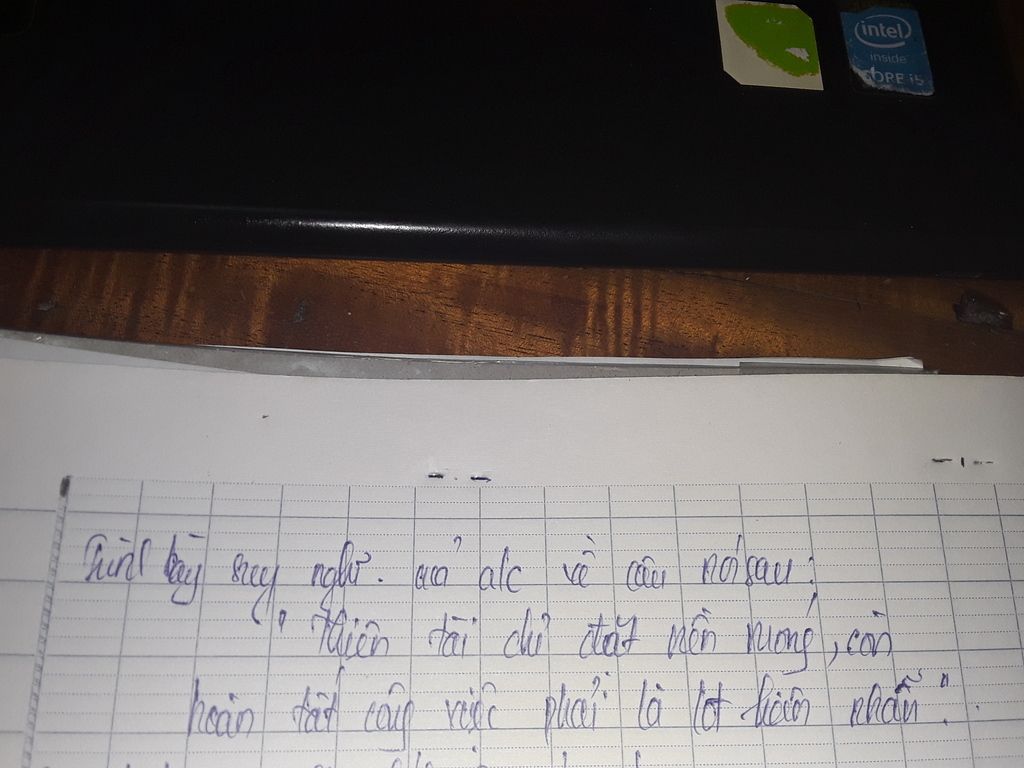 intel
inside
CORE i5
Trình bày suy nghĩ. của a/c về câu nói sau:
" Thiên tài chỉ đặt nền móng, còn
hoàn tất công việc phải là lot kiên nhẫn".